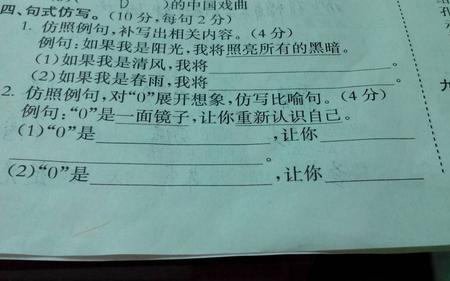 D )的中国戏曲
四、句式仿写。(10分,每句2分)
1. 仿照例句,补写出相关内容。(4分)
例句:如果我是阳光,我将照亮所有的黑暗。
(1)如果我是清风,我将____________________。
(2)如果我是春雨,我将____________________。
2. 仿照例句,对“0”展开想象,仿写比喻句。(4分)
例句:“0”是一面镜子,让你重新认识自己。
(1)“0”是____________________,让你____________
____________________。
(2)“0”是____________________,让你____________